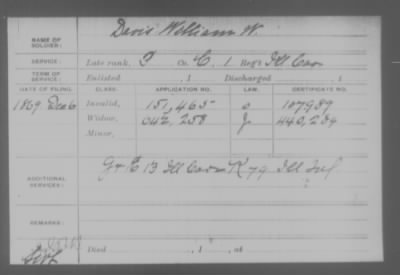 Davis William W.
NAME OF SOLDIER:
SERVICE: Late rank, P Co. C, 1 Reg't Ill Cav
TERM OF SERVICE: Enlisted , 1 Discharged , 1
DATE OF FILING. CLASS. APPLICATION NO. LAW. CERTIFICATE NO.
1869 Dec 6 Invalid, 151,465 107989
Widow, 642,258 440,254
Minor,
ADDITIONAL SERVICES: G & E 13 Ill Cav K 79 Ill Inf
REMARKS:
Died , 1 , at